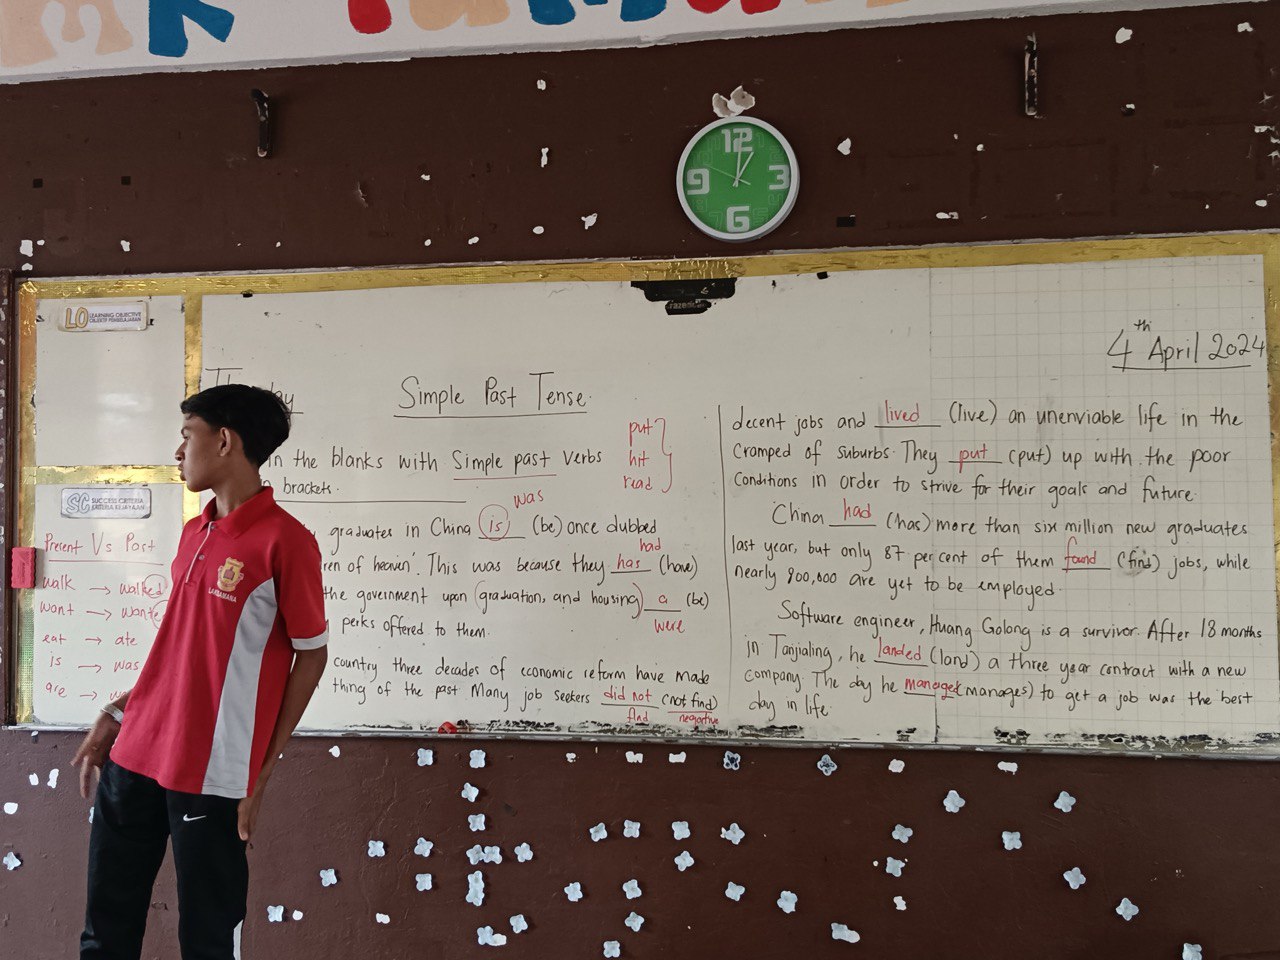 12
3
6
9
LO LEARNING OBJECTIVE
OBJEKTIF PEMBELAJARAN
SC SUCCESS CRITERIA
KRITERIA KEJAYAAN
Present Vs Past
walk → walked
want → wante
eat → ate
is → was
are →
4th April 2024
Simple Past Tense.
in the blanks with Simple past verbs
brackets.
put
hit
read
was
graduates in China is (be) once dubbed
had
ren of heaven'. This was because they has (have)
the government upon (graduation, and housing) a (be)
were
perks offered to them.
country three decades of economic reform have made
thing of the past Many job seekers did not (not find)
find negative
decent jobs and lived (live) an unenviable life in the
cramped of suburbs. They put (put) up with the poor
conditions in order to strive for their goals and future.
China had (has) more than six million new graduates
last year, but only 87 per cent of them found (find) jobs, while
nearly 800,000 are yet to be employed.
Software engineer, Huang Golong is a survivor. After 18 months
in Tanjialing, he landed (land) a three year contract with a new
company. The day he managed (manages) to get a job was the best
day in life.